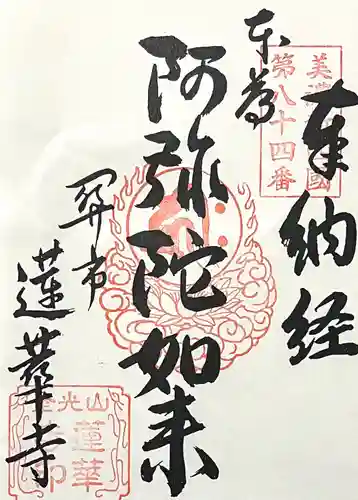 奉納経
美濃
國
第八十四番
本尊
阿弥陀如来
関市
蓮華寺
山光
蓮華
印